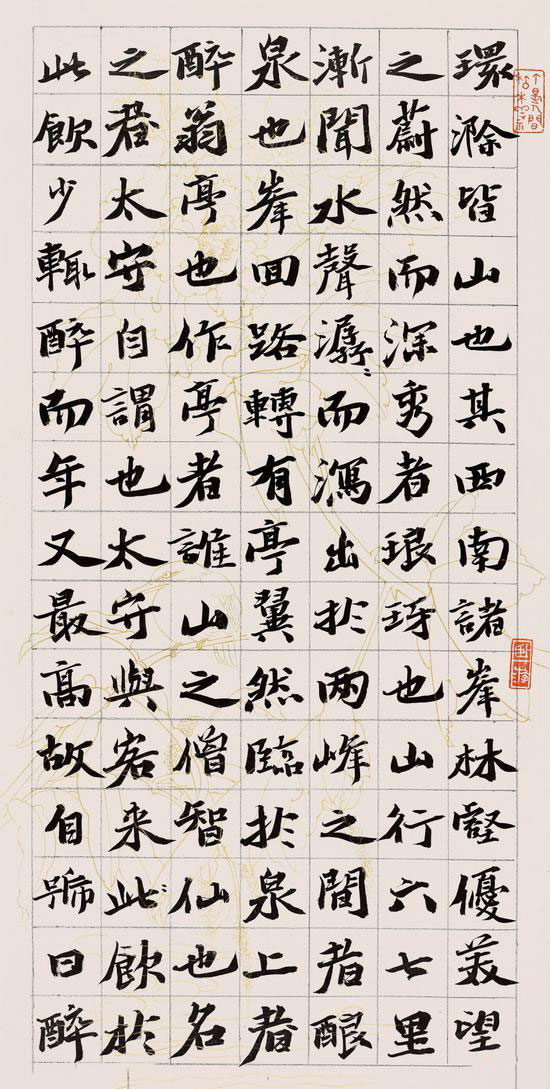 環滁皆山也其西南諸峯林壑優美望
之蔚然而深秀者琅玡也山行六七里
漸聞水聲潺〻而瀉出扵兩峰之間者釀
泉也峯回路轉有亭翼然臨扵泉上者
醉翁亭也作亭者誰山之僧智仙也名
之者太守自謂也太守與客来此飲於
此飲少輒醉而年又最高故自號曰醉